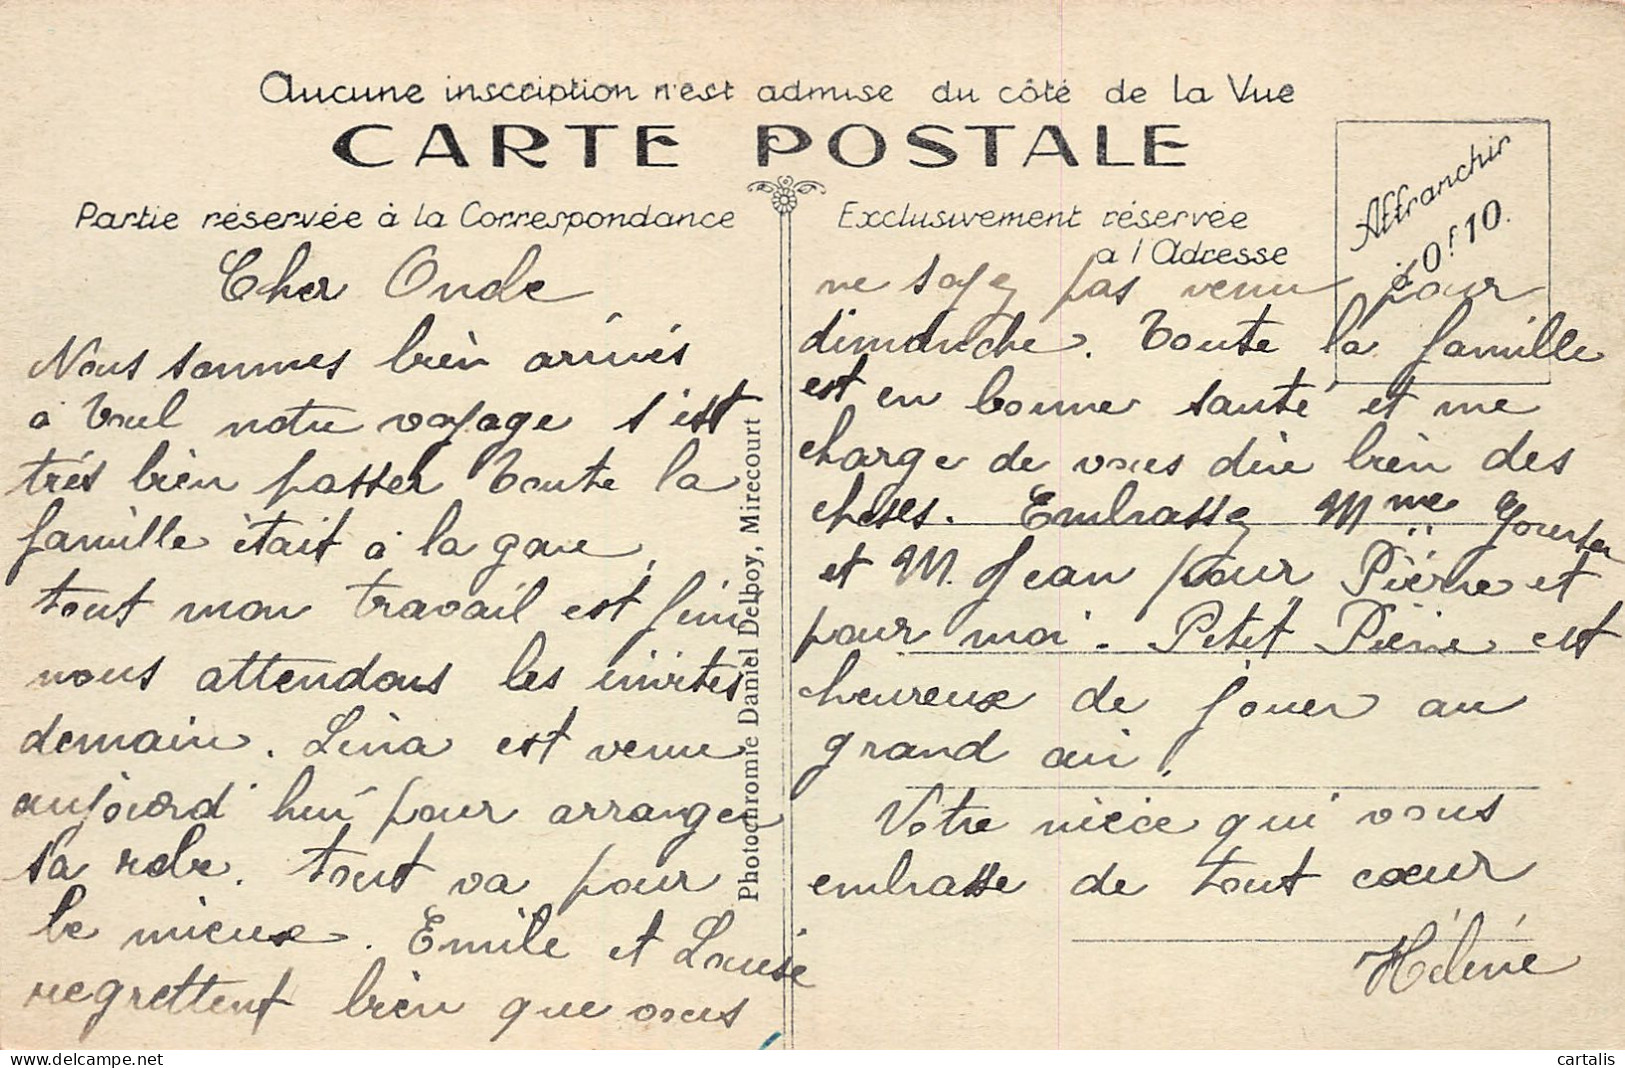 Aucune inscription n'est admise du côté de la Vue
CARTE POSTALE
Partie réservée à la Correspondance
Exclusivement réservée
a l'Adresse
Affranchir
à 0f10.
Cher Oncle
Nous sommes bien arrivés
à Toul notre voyage s'est
très bien passer toute la
famille était à la gare,
tout mon travail est fini
nous attendons les invités
demain. Lina est venue
aujourd'hui pour arranger
sa robe. tout va pour
le mieux. Emile et Louise
regrettent bien que vous
Photochromie Daniel Delboy, Mirecourt
ne soyez pas venu pour
dimanche. Toute la famille
est en bonne santé et me
charge de vous dire bien des
choses. Embrassez Mme
et M. Jean pour Pierre et
pour moi. Petit Pierre est
heureux de jouer au
grand air.
Votre nièce qui vous
embrasse de tout cœur
Hélène
cartalis